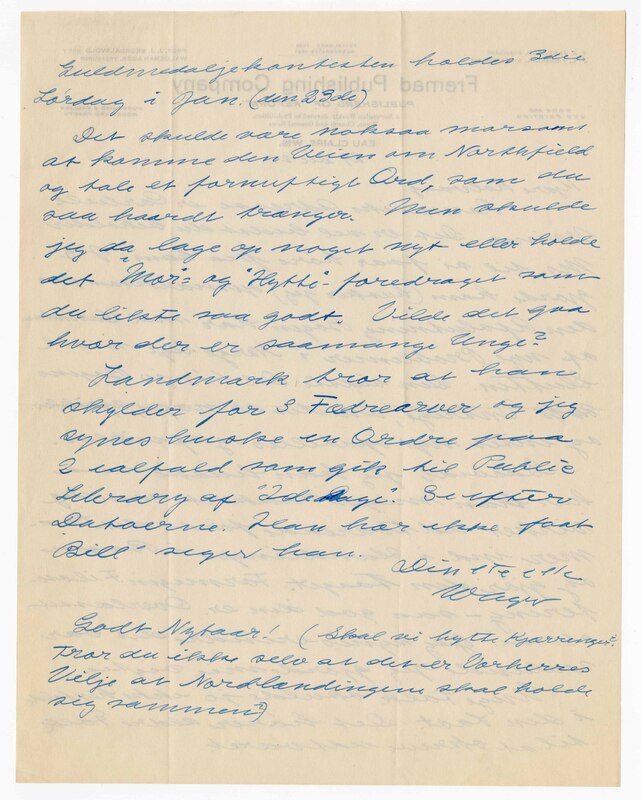 Guldmedaljekontesten holdes 3die
Lørdag i Jan. (den 23de)
Det skulde være noksaa morsomt
at komme den Veien om Northfield
og tale et fornuftigt Ord, som du
saa haardt trænger. Men skulde
jeg da lage op noget nyt eller holde
det "Mor"- og "Hytte"- foredraget som
du likte saa godt. Vilde det gaa
hvor der er saamange Unge?
Landmark tror at han
skylder for 3 Fædrearver og jeg
synes huske en Ordre paa
2 ialfald som gik til Public
Library af "I de Dage". Se efter
Datoerne. Han har ikke faat
"Bill" siger han.
Din
Wager
Godt Nytaar! (Skal vi bytte Kjærringer?
Tror du ikke selv at det er Vorherres
Vilje at Nordlændingene skal holde
sig sammen?)
Fremad Publishing Company
EAU CLAIRE, WIS.